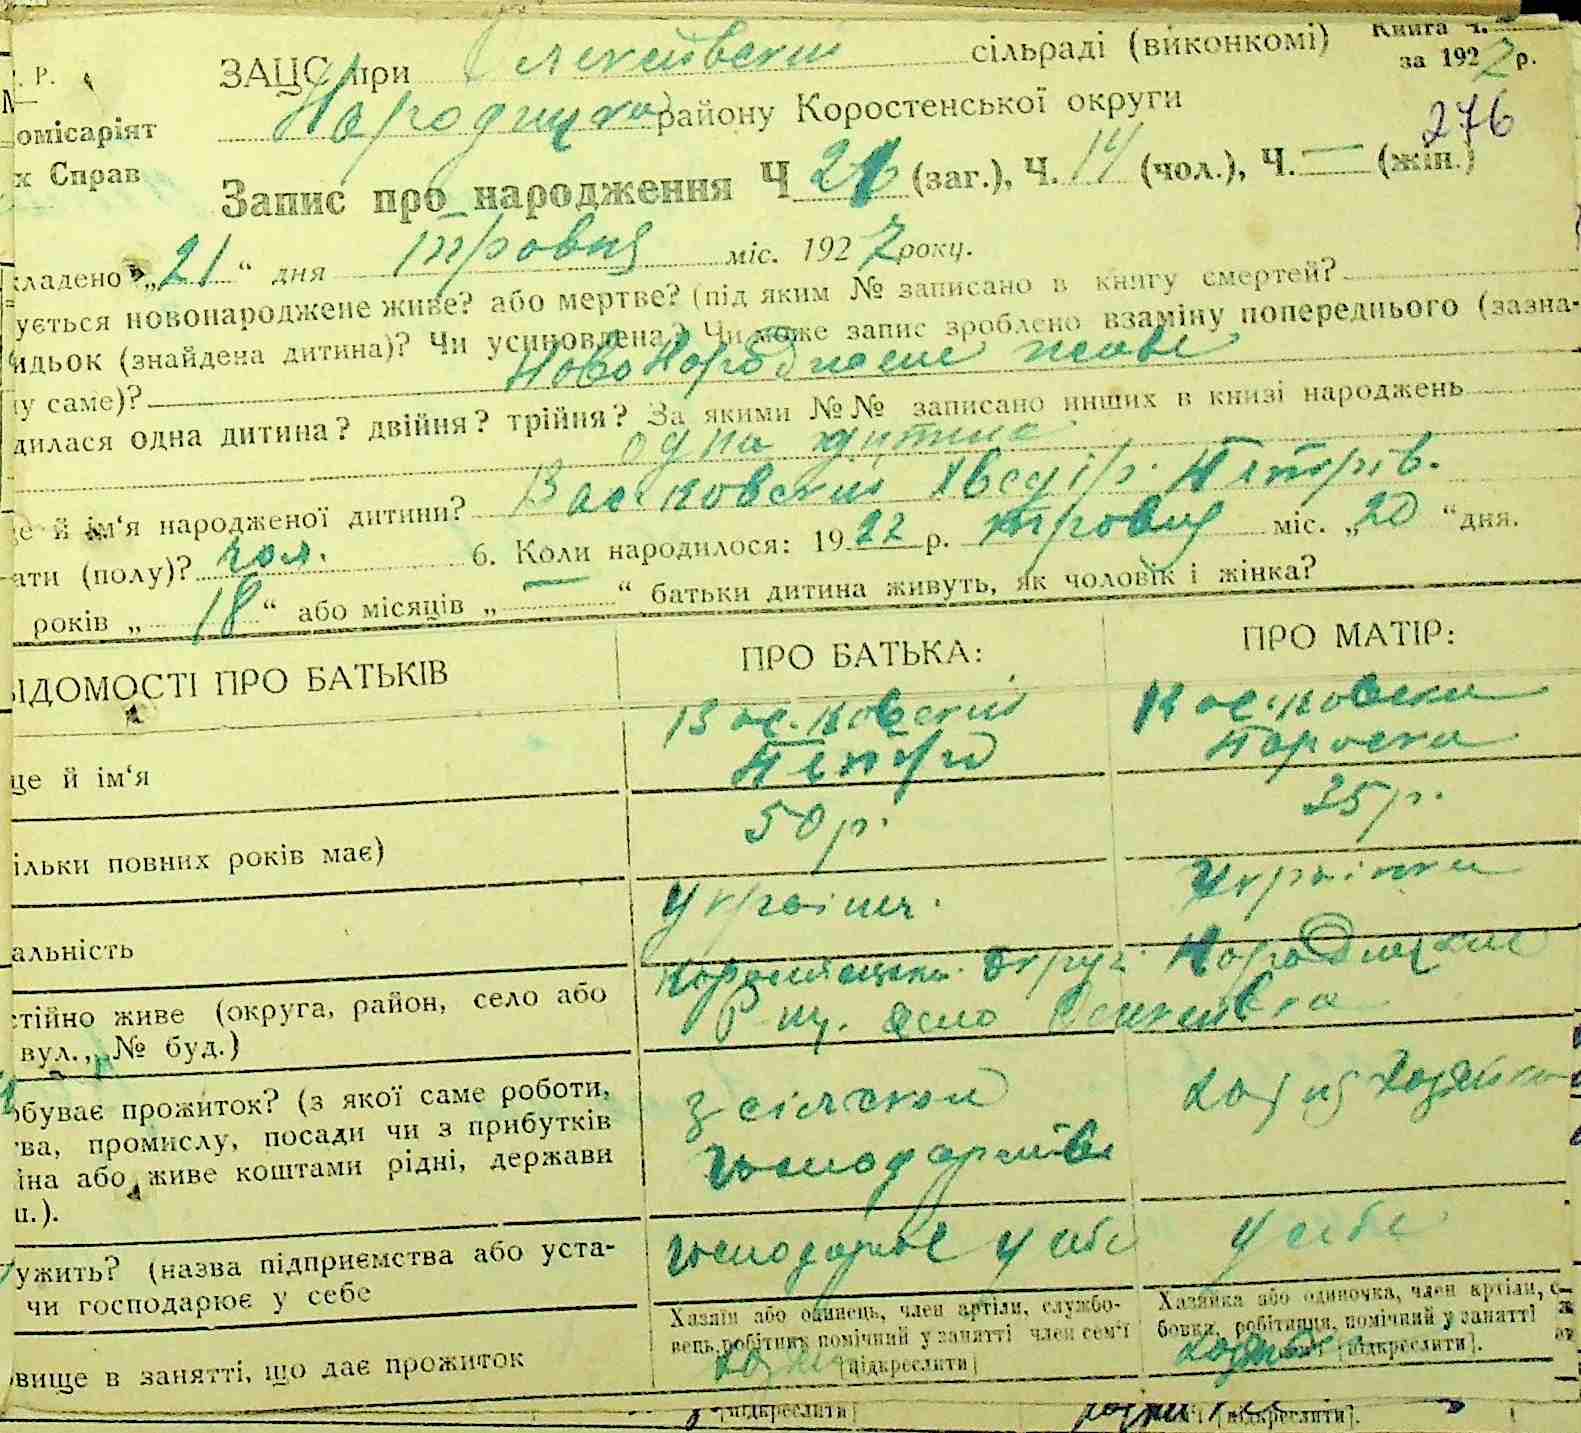 Р.
ЗАЦС при сільраді (виконкомі) Книга ч.
за 1927 р.
омісаріят Народицько району Коростенської округи
276
х Справ
Запис про народження Ч. 21 (заг.), Ч. 14 (чол.), Ч. — (жін.)
кладено „21“ дня травня міс. 1927 року.
ується новонароджене живе? або мертве? (під яким № записано в книгу смертей?
идьок (знайдена дитина)? Чи усиновлена? Чи може запис зроблено взаміну попереднього (зазна-
у саме)? Новонароджене живе
дилася одна дитина? двійня? трійня? За якими №№ записано инших в книзі народжень
одна дитина
е й ім‘я народженої дитини? Васьковский Хведір Петрів.
ати (полу)? чол. 6. Коли народилося: 1927 р. травня міс. „20“ дня.
років „18“ або місяців „—“ батьки дитина живуть, як чоловік і жінка?
ІДОМОСТІ ПРО БАТЬКІВ ПРО БАТЬКА: ПРО МАТІР:
Васьковский Васьковска
ще й ім‘я Петро Пароска
ільки повних років має) 50 р. 25 р.
альність Українч. Українка
стійно живе (округа, район, село або Коростенська округ. Народицкий
вул., № буд.) Р-ну. село
обуває прожиток? (з якої саме роботи, з сільского
ва, промислу, посади чи з прибутків господарства
іна або живе коштами рідні, держави
ш.).
ужить? (назва підприємства або уста- господарює у себе у себе
чи господарює у себе
Хазяїн або одинець, член артіли, службо- Хазяйка або одиночка, член артіли, с-
вець, робітник помічний у занятті член сем‘ї бовка, робітниця, помічний у занятті
овище в занятті, що дає прожиток [підкреслити] [підкреслити].
[підкреслити] [підкреслити].